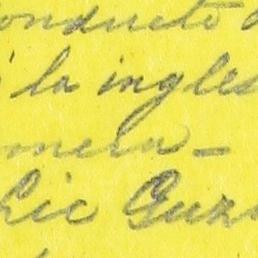 onducto
la ingles
mera-
Lic Guz